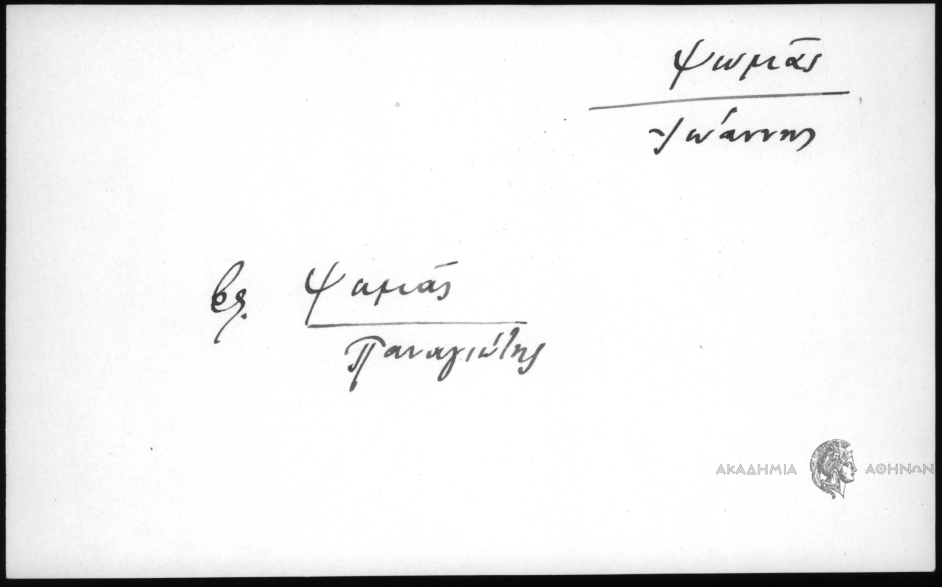 Ψωμᾶς
Ἰωάννης
βλ. Ψωμᾶς
Παναγιώτης
ΑΚΑΔΗΜΙΑ ΑΘΗΝΩΝ